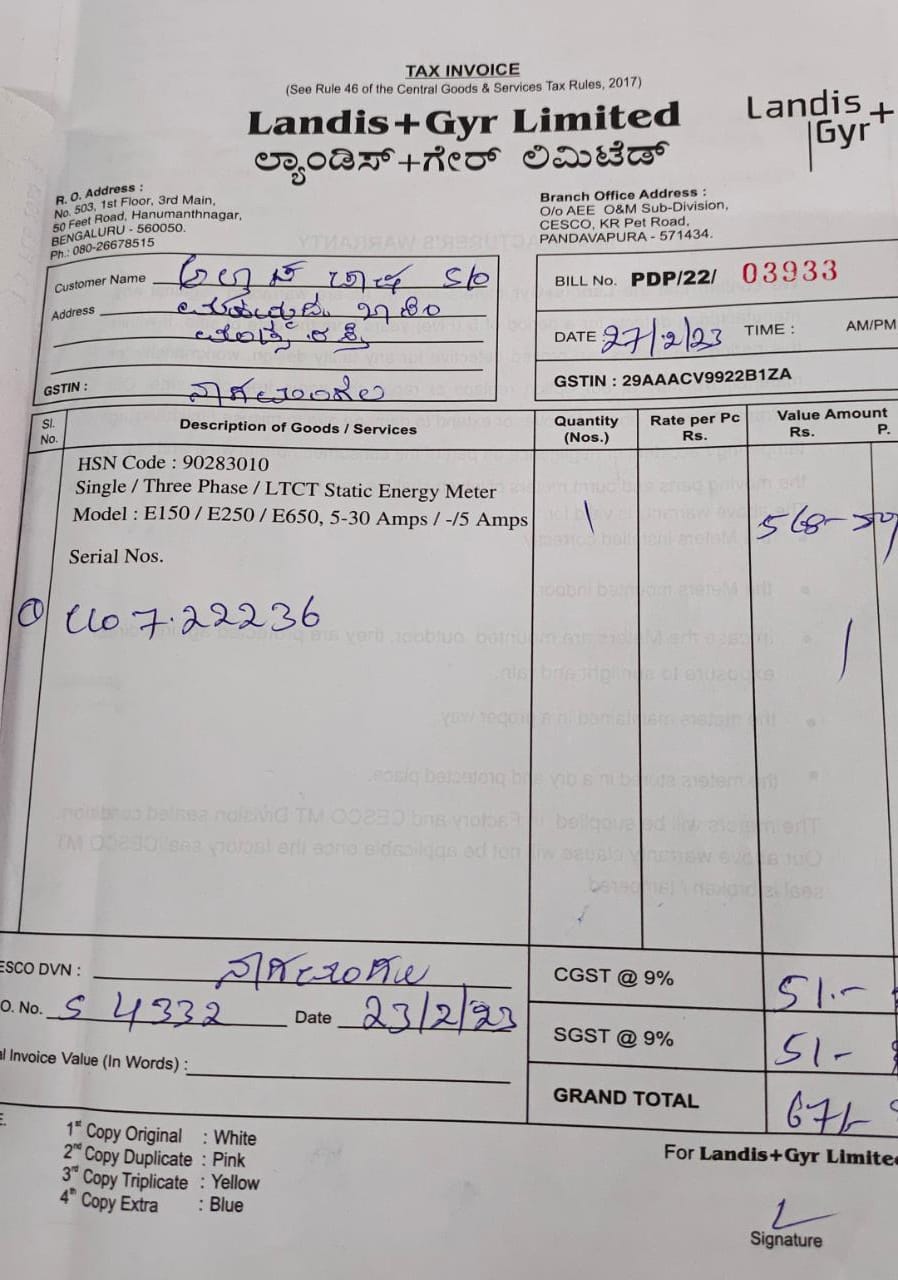 TAX INVOICE
(See Rule 46 of the Central Goods & Services Tax Rules, 2017)
Landis+Gyr Limited
ಲ್ಯಾಂಡಿಸ್+ಗೇರ್ ಲಿಮಿಟೆಡ್
Landis
Gyr+
R. O. Address :
No. 503, 1st Floor, 3rd Main,
50 Feet Road, Hanumanthnagar,
BENGALURU - 560050.
Ph.: 080-26678515
Branch Office Address :
O/o AEE O&M Sub-Division,
CESCO, KR Pet Road,
PANDAVAPURA - 571434.
Customer Name S/o
Address
GSTIN :
BILL No. PDP/22/ 03933
DATE 27/2/23 TIME : AM/PM
GSTIN : 29AAACV9922B1ZA
Sl. No. Description of Goods / Services Quantity (Nos.) Rate per Pc Rs. Value Amount Rs. P.
HSN Code : 90283010
Single / Three Phase / LTCT Static Energy Meter
Model : E150 / E250 / E650, 5-30 Amps / -/5 Amps 1 568-
Serial Nos.
7.22236
ESCO DVN :
CGST @ 9% 51.-
O. No. S 4332 Date 23/2/23
SGST @ 9% 51-
l Invoice Value (In Words) :
GRAND TOTAL 671-
1st Copy Original : White
2nd Copy Duplicate : Pink
3rd Copy Triplicate : Yellow
4th Copy Extra : Blue
For Landis+Gyr Limite
Signature